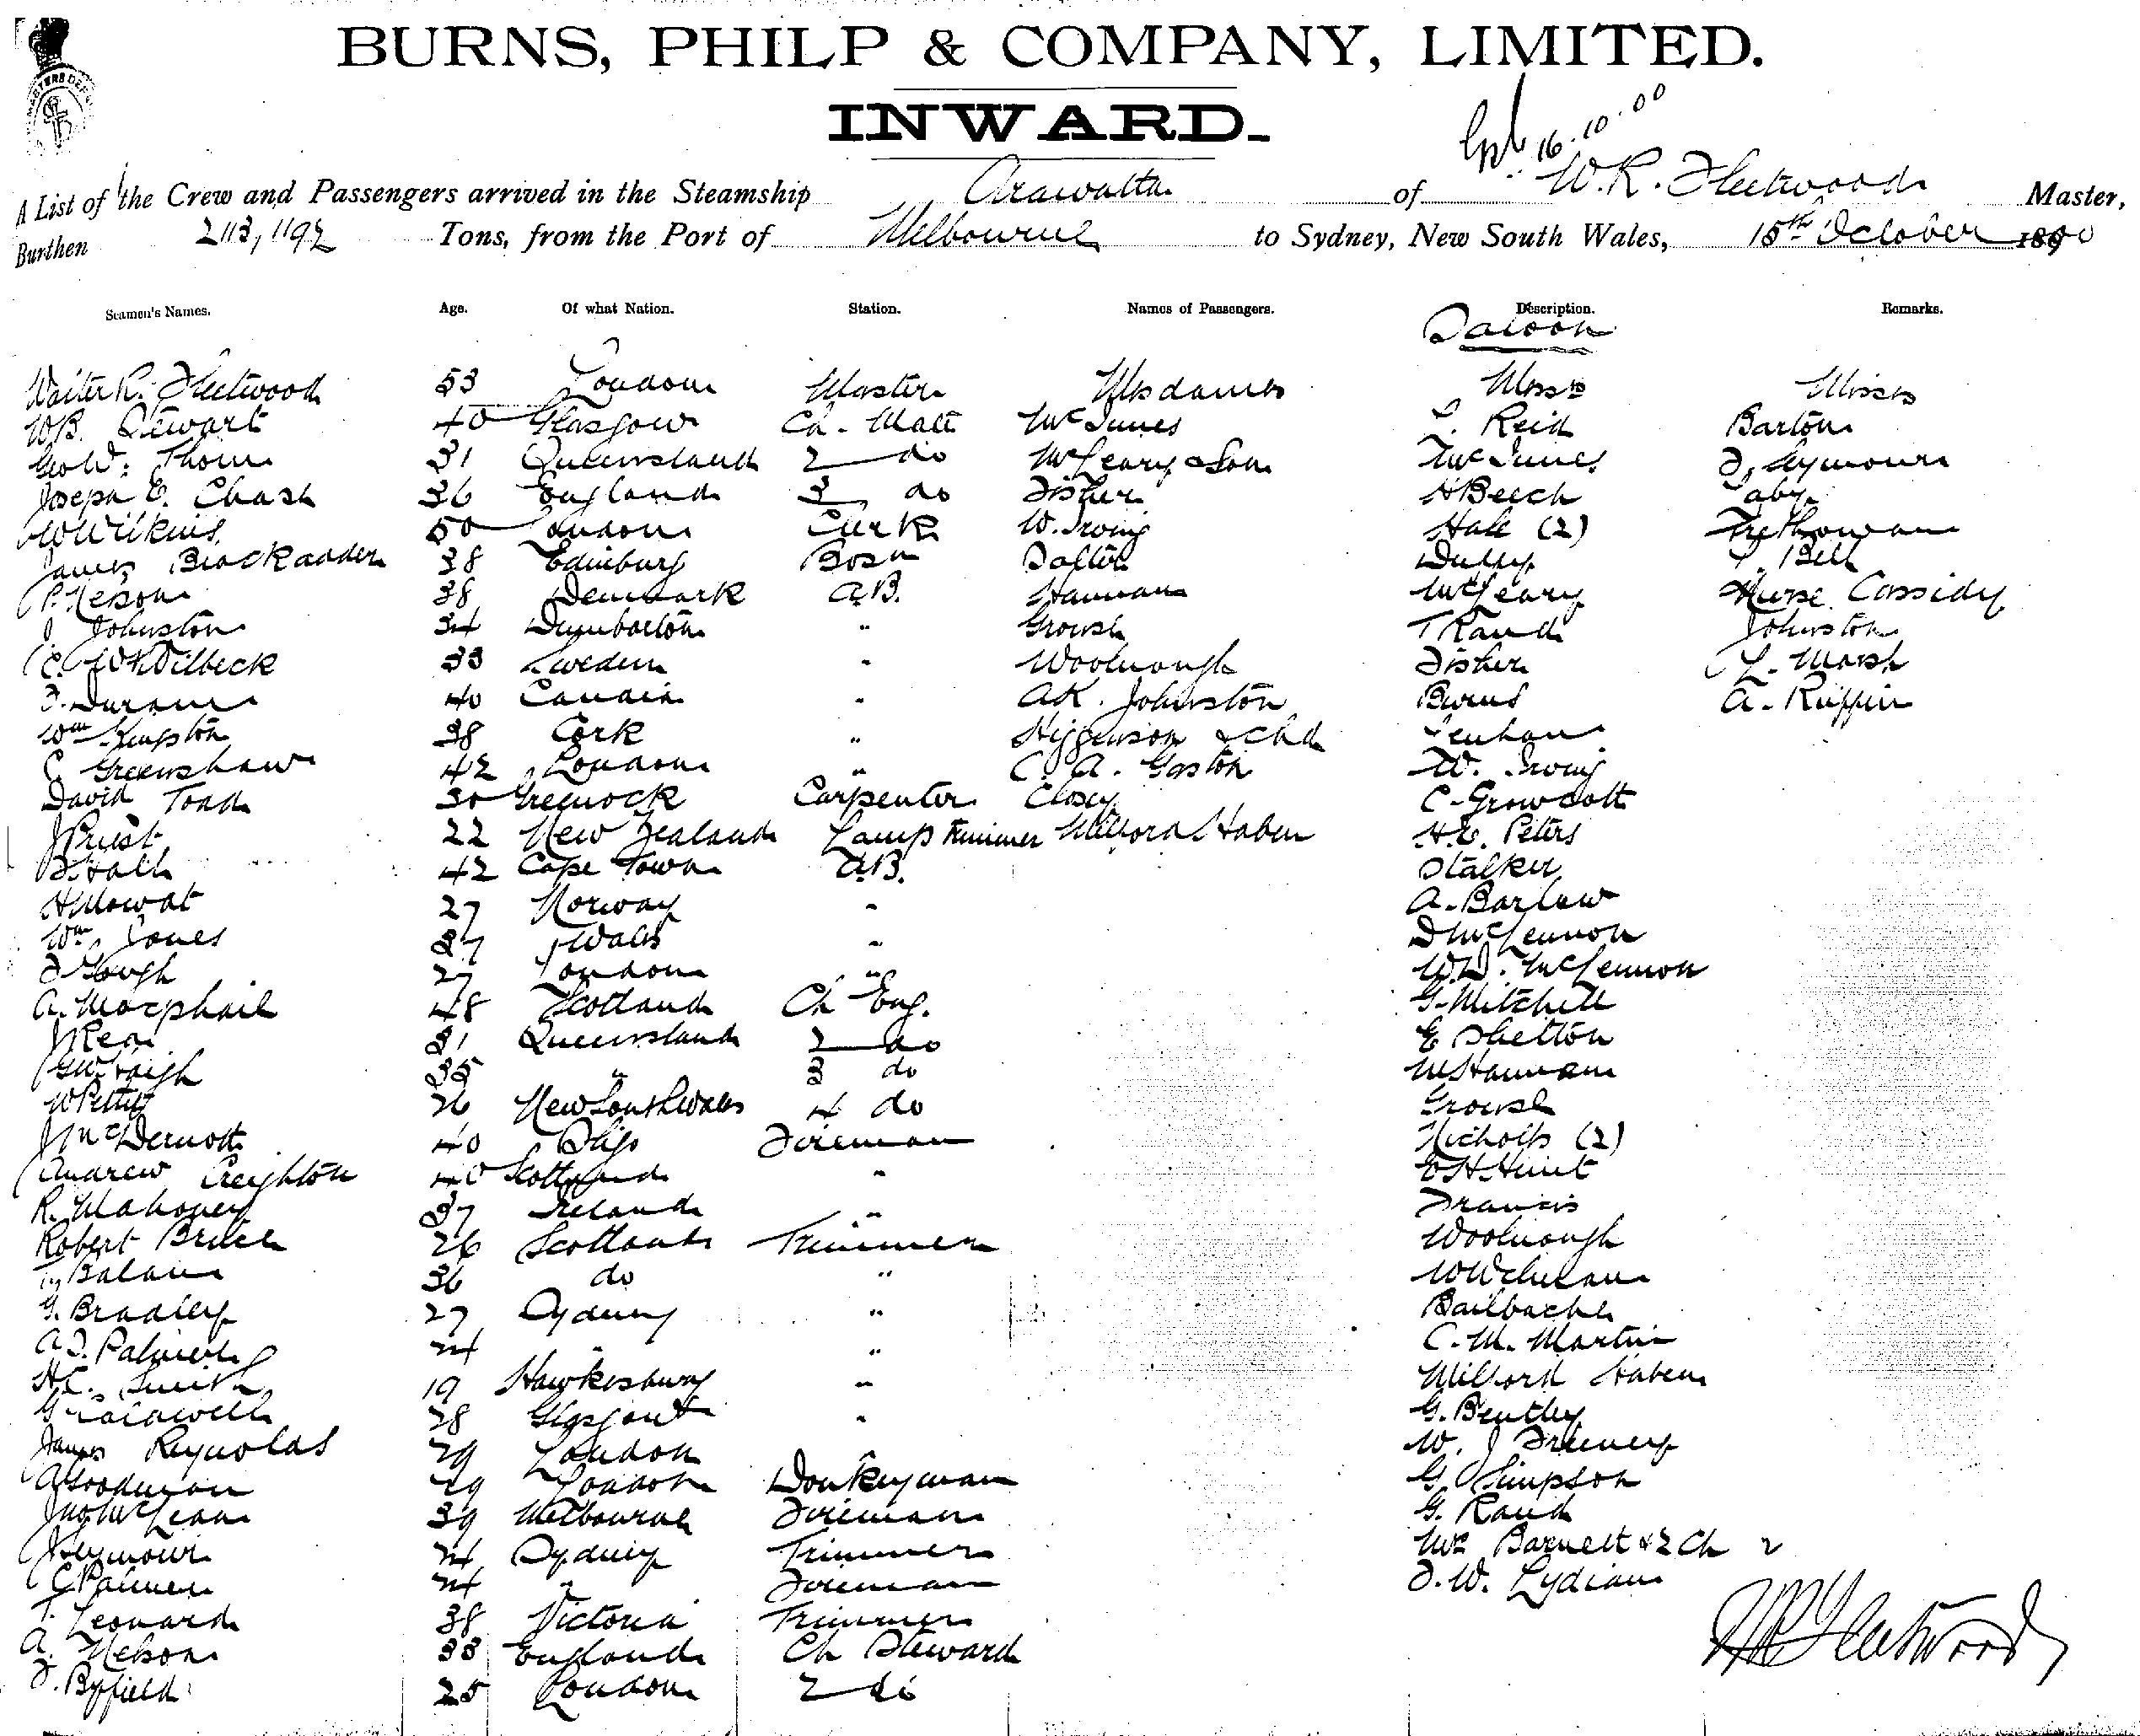 BURNS, PHILP & COMPANY, LIMITED.
INWARD.
16.10.00
A List of the Crew and Passengers arrived in the Steamship Arawatta of W.R. Fleetwood Master,
Burthen 2113, 1192 Tons, from the Port of Melbourne to Sydney, New South Wales, 15th October 1900
Seamen's Names. Age. Of what Nation. Station. Names of Passengers. Description. Remarks.
Saloon
Walter R. Fleetwood 53 London Master Mesdames Messrs Misses
W.B. Stewart 40 Glasgow Ch. Mate McInnes Reid Barton
Geo W. Thom 31 Queensland 2 do McLeary & Son McInnes Seymour
Joseph E. Chase 36 England 3 do Fisher H Beech
W Wilkins 50 London Clerk W. Irving Hale (2) Trethowan
James Blackadder 38 Edinburg Bosn Dalton Duffy Bell
P. Nelson 38 Denmark A.B. Hannan McLeary Nurse Cassidy
J. Johnston 34 Dumbarton " Growse T Rand Johnston
33 Sweden " Woolnough Fisher L. Marsh
40 " A K. Johnston Burns A. Ruffin
Wm Kingston 38 Cork " Higginson & Chd Lenhan
C Greenshaw 42 London " C. A. Gaston W. Irving
David Todd 30 Greenock Carpenter Closey C. Growcott
J Priest 22 New Zealand Lamp trimmer Milford Haben H.E. Peters
F. Hall 42 Cape Town A.B. Stalker
H Mowat 27 Norway " A. Barlow
Wm Jones 37 Wales " D McLennon
F Gough 27 London " W.D. McLennon
A. Macphail 48 Scotland Ch Eng. G. Mitchell
J Rea 31 Queensland 2 do E Shelton
35 " 3 do M Hannan
W Pettit 26 New South Wales 4 do Growse
J McDermott 40 Sligo Fireman Nicholls (2)
Andrew Creighton 40 Scotland " E H Hunt
R. Mahoney 37 Ireland " Francis
Robert Bruce 26 Scotland Trimmer Woolnough
Balain 36 do "
G. Bradley 27 Sydney " Bailbache
A.J. Palmer 24 " " C. M. Martin
H.C. Smith 19 Hawkesbury " Milford Haben
28 Glasgow " G. Bentley
James Reynolds 29 London W. J Freeney
A Goodman 29 London Donkeyman G Simpson
Jno McLean 39 Melbourne Fireman G. Rand
J Seymour 24 Sydney Trimmer Mrs Barnett & 2 Ch 2
C Palmer 24 " Fireman F. W. Lydian
T. Leonard 38 Victoria Trimmer
A. Nelson 33 England Ch Steward
F. Byfield 25 London 2 do
WR Fleetwood